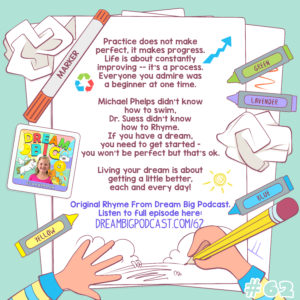 Practice does not make
perfect, it makes progress.
Life is about constantly
improving -- it's a process.
Everyone you admire was
a beginner at one time.
Michael Phelps didn't know
how to swim,
Dr. Suess didn't know
how to Rhyme.
If you have a dream,
you need to get started -
you won't be perfect but that's ok.
Living your dream is about
getting a little better,
each and every day!
Original Rhyme From Dream Big Podcast.
Listen to full episode here:
DREAMBIGPODCAST.COM/62
MARKER
GREEN
LAVENDER
DREAM
BIG
YELLOW
BLUE
#62